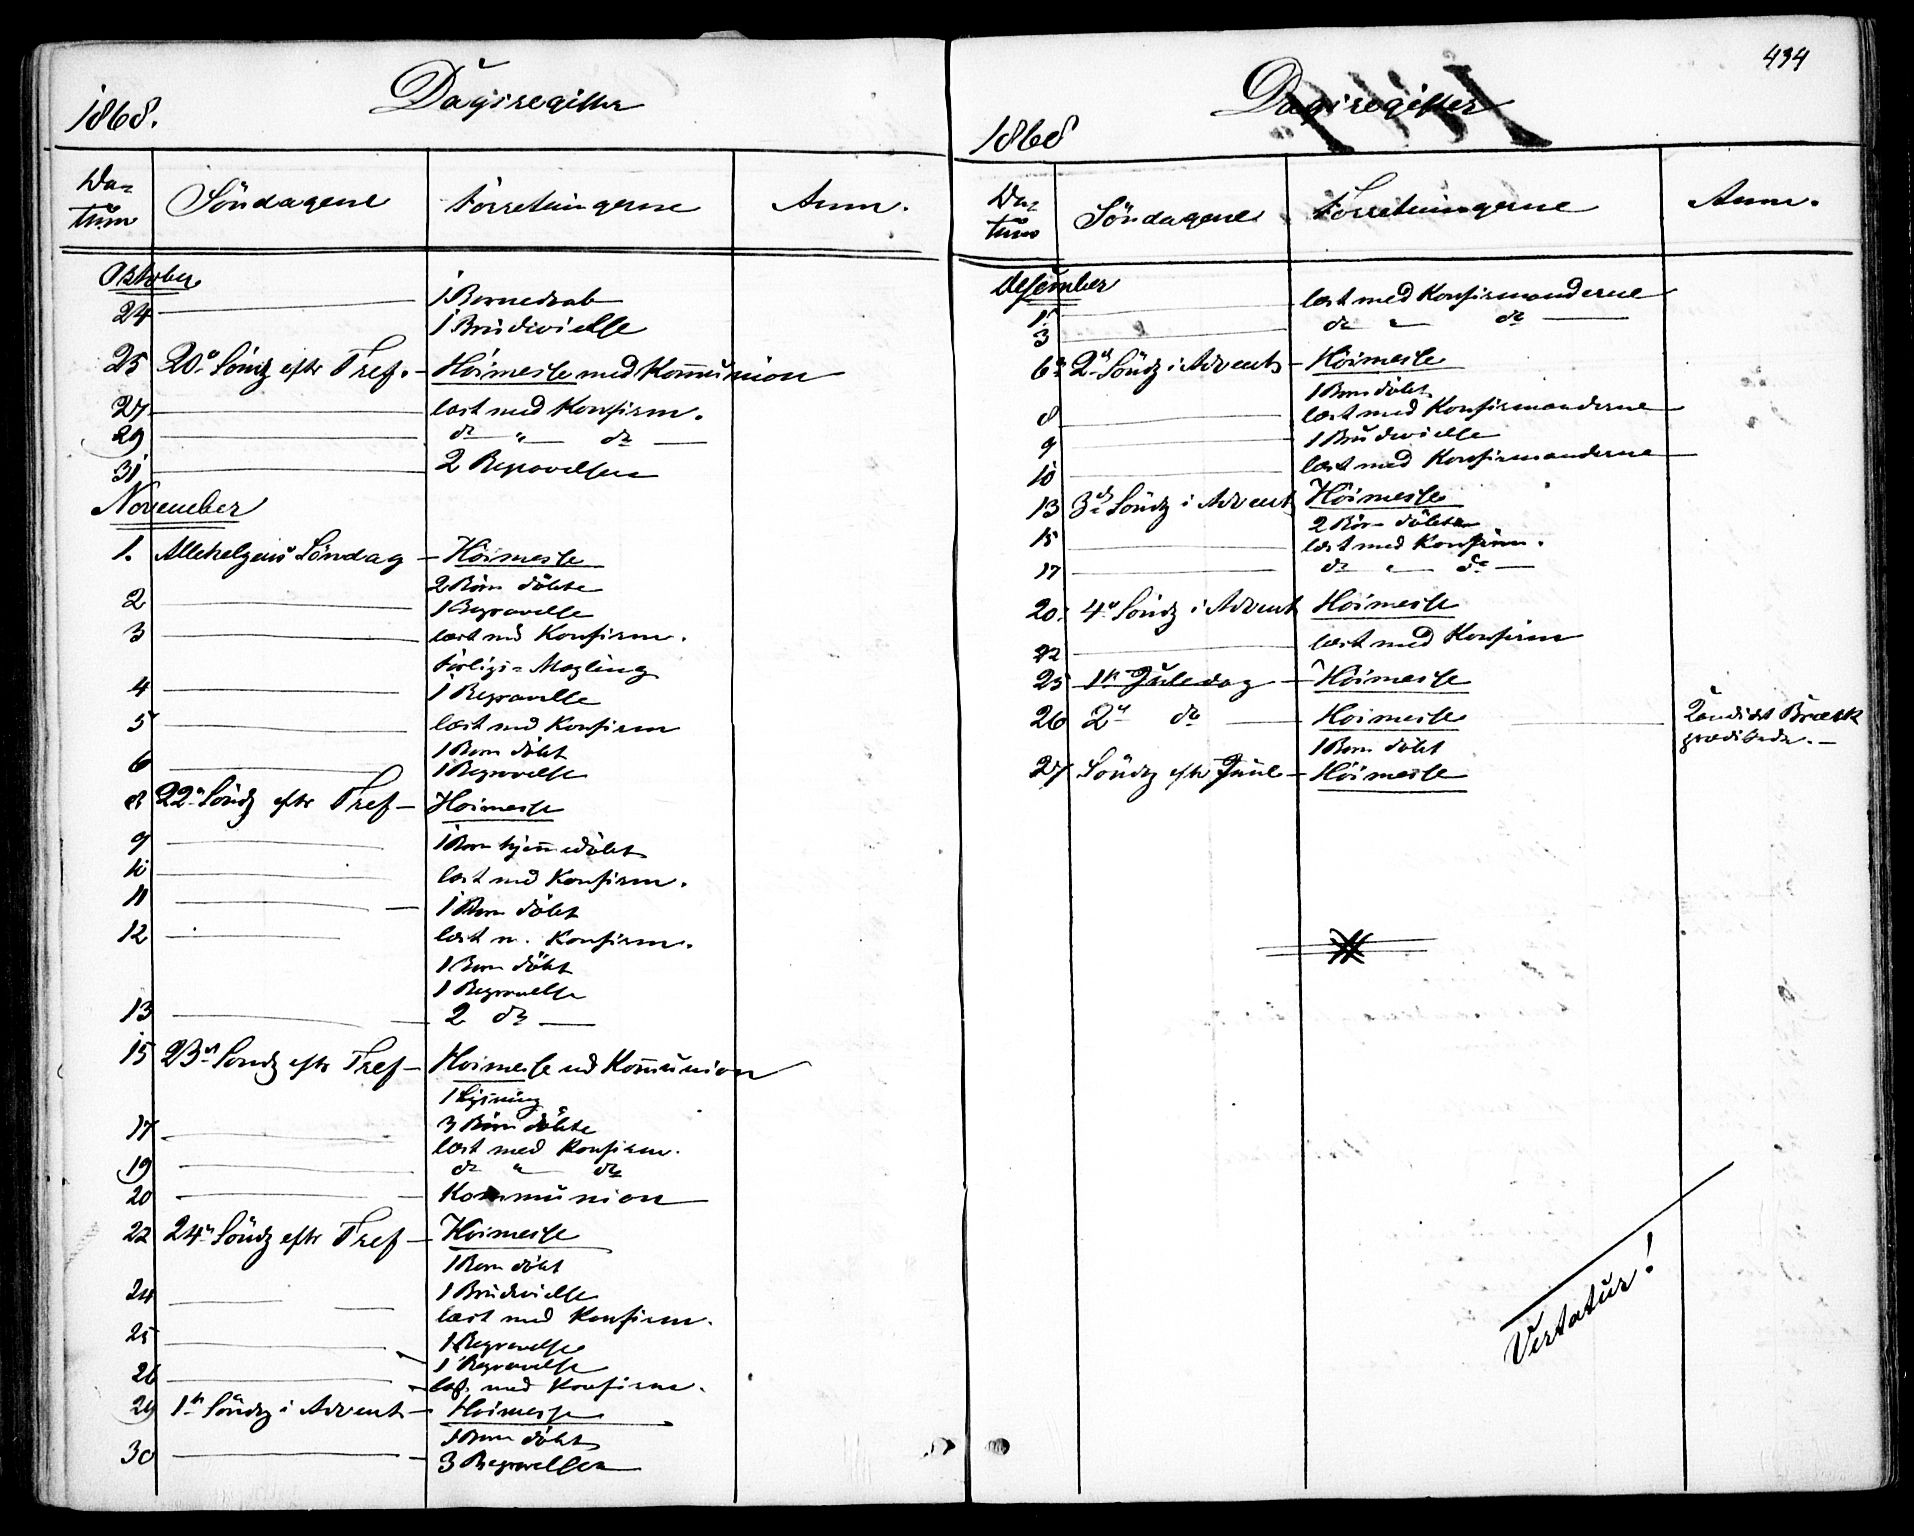 1868.
Dagsregister
Da-
tum
Söndagene
Forretningerne
Anm.
Oktober
24 1 Barnedaab
1 Brudevielse
25 20de Söndg eftr Tref. - Höimesse med Kommunion
27 læst med Konfirm.
29 do " do
31 2 Begravelser
November
1. Allehelgens Söndag - Höimesse
2 Börn döbte
2 1 Begravelse
3 læst md Konfirm.
Forligs-Mægling
4 1 Begravelse
5 læst med Konfirm
1 Barn döbt
6 1 Begravelse
8 22de Söndg eftr Tref - Höimesse
9 1 Barn hjemmedöbt
10 læst med Konfirm.
11 1 Barn döbt
12 læst m. Konfirm.
1 Barn döbt
1 Begravelse
13 2 do
15 23de Söndg eftr Tref - Höimesse md Kommunion
1 Lysning
3 Börn döbte
17 læst med Konfirm.
19 do " do
20 Kommunion
22 24de Söndg eftr Tref - Höimesse
1 Barn döbt
24 1 Brudevielse
læst med Konfirm.
25 1 Begravelse
1 Begravelse
26 læst med Konfirm.
29 1ste Söndg i Advent - Höimesse
1 Barn döbt
30 3 Begravelser
434
1868
Dagsregister
Da-
tum
Söndagene
Forretningerne
Anm.
Desember
1. læst med Konfirmanderne
3 do " do
6te 2den Söndg i Advent - Höimesse
1 Barn döbt
8 læst med Konfirmanderne
9 1 Brudevielse
10 læst med Konfirmanderne
13 3die Söndg i Advent Höimesse
2 Börn döbte
15 læst med Konfirm.
17 do " do
20. 4de Söndg i Advent Höimesse
22 læst med Konfirm
25 1ste Juledag - Höimesse
26 2den do Höimesse Kandidat Brætk
prædikede. -
1 Barn döbt
27 Söndg eftr Juul - Höimesse
Vertatur!